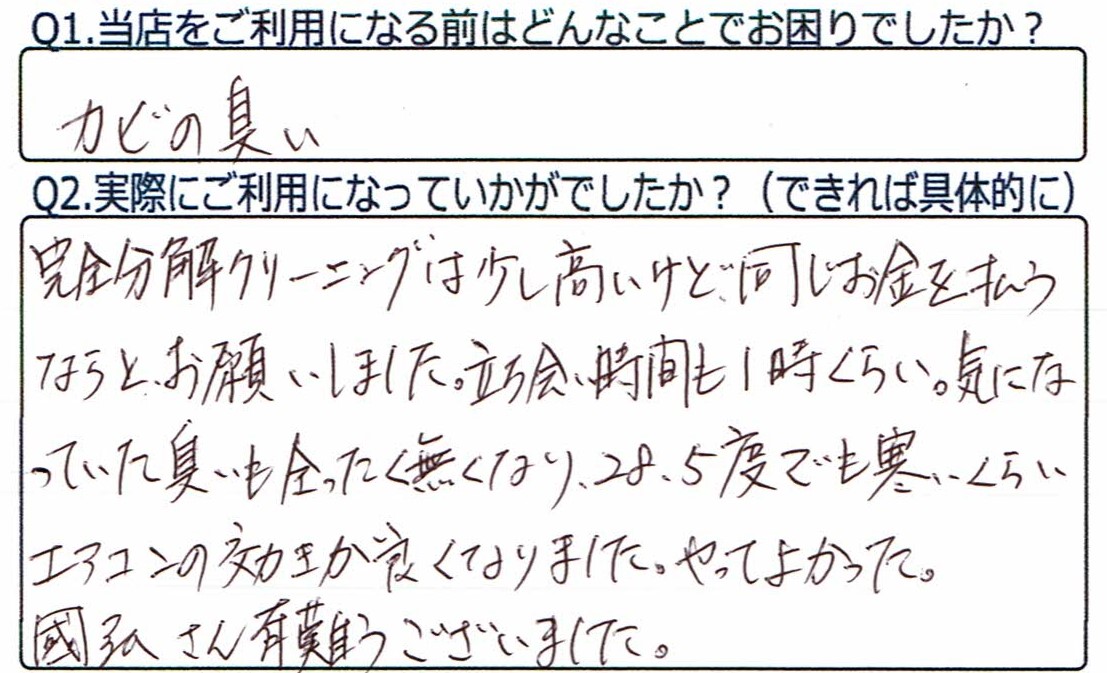 Q1.当店をご利用になる前はどんなことでお困りでしたか？
カビの臭い
Q2.実際にご利用になっていかがでしたか？（できれば具体的に）
完全分解クリーニングは少し高いけど、同じお金を払う
ならと、お願いしました。立ち会い時間も1時くらい。気にな
っていた臭いも全ったく無くなり、28.5度でも寒いくらい
エアコンの効きが良くなりました。やってよかった。
國弘さん有難うございました。